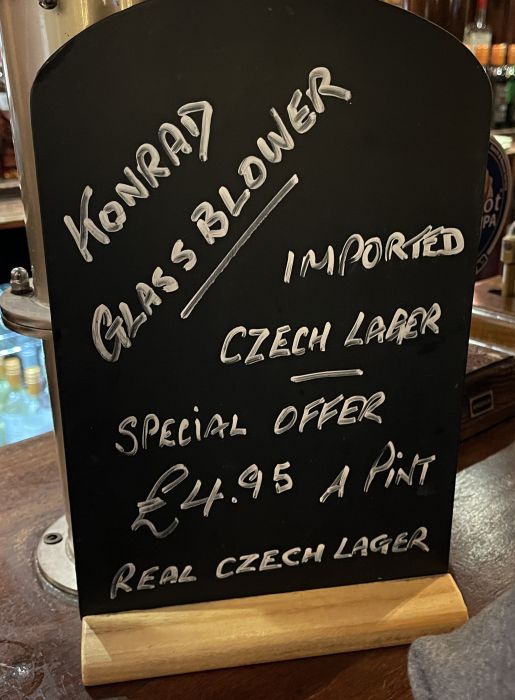 KONRAD
GLASS BLOWER
IMPORTED
CZECH LAGER
SPECIAL OFFER
£4.95 A PINT
REAL CZECH LAGER